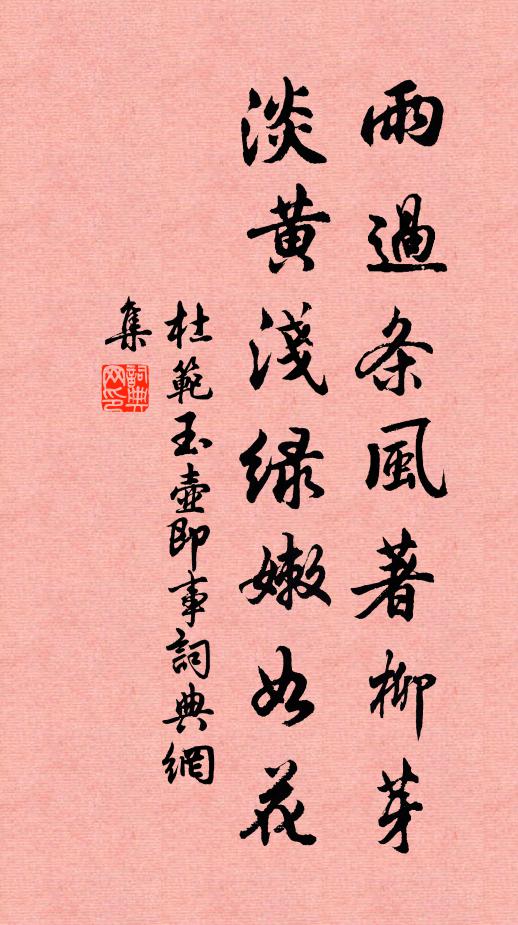 雨過条風著柳芽
淡黄淺緑嫩如花
杜範玉壺即事詞典網
集
詞典网印